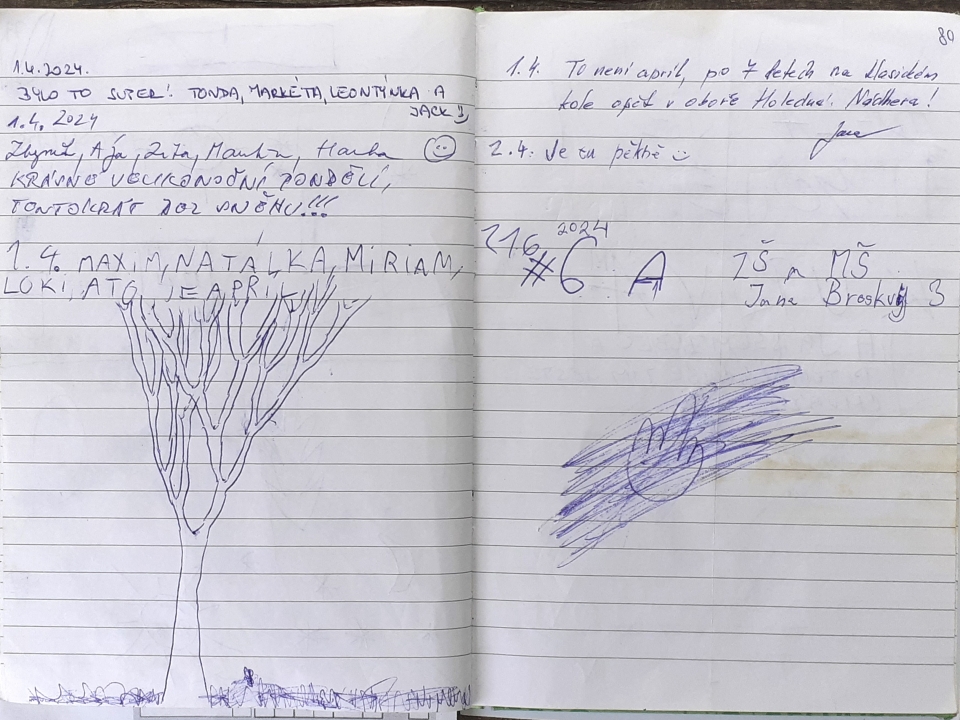 1.4.2024.
BYLO TO SUPER! TONDA, MARKÉTA, LEONTÝNKA A
JACK!
1.4.2024
Zbyněk, Ája, Zita, Hanka
KRÁSNÉ VELIKONOČNÍ PONDĚLÍ,
TENTOKRÁT BEZ SNĚHU!!!
1.4. MAXIM, NATÁLKA, MIRIAM,
LOKI, ATO, JE APRÍL
80
1.4. To není apríl, po 7 letech na klasickém
kole opět v oboře Holedná. Nádhera!
Jana
2.4. Je tu pěkně
2024
216
#6 A ZŠ a MŠ
Jana Broskvy 3